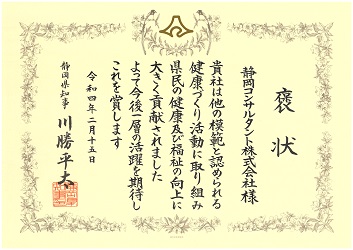 褒状
静岡コンサルタント株式会社様
貴社は他の模範と認められる
健康づくり活動に取り組み
県民の健康及び福祉の向上に
大きく貢献されました
よって今後一層の活躍を期待し
これを賞します
令和四年二月十五日
静岡県知事 川勝平太